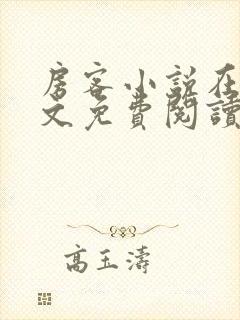 房客小说在
文免費閱讀
高玉濤